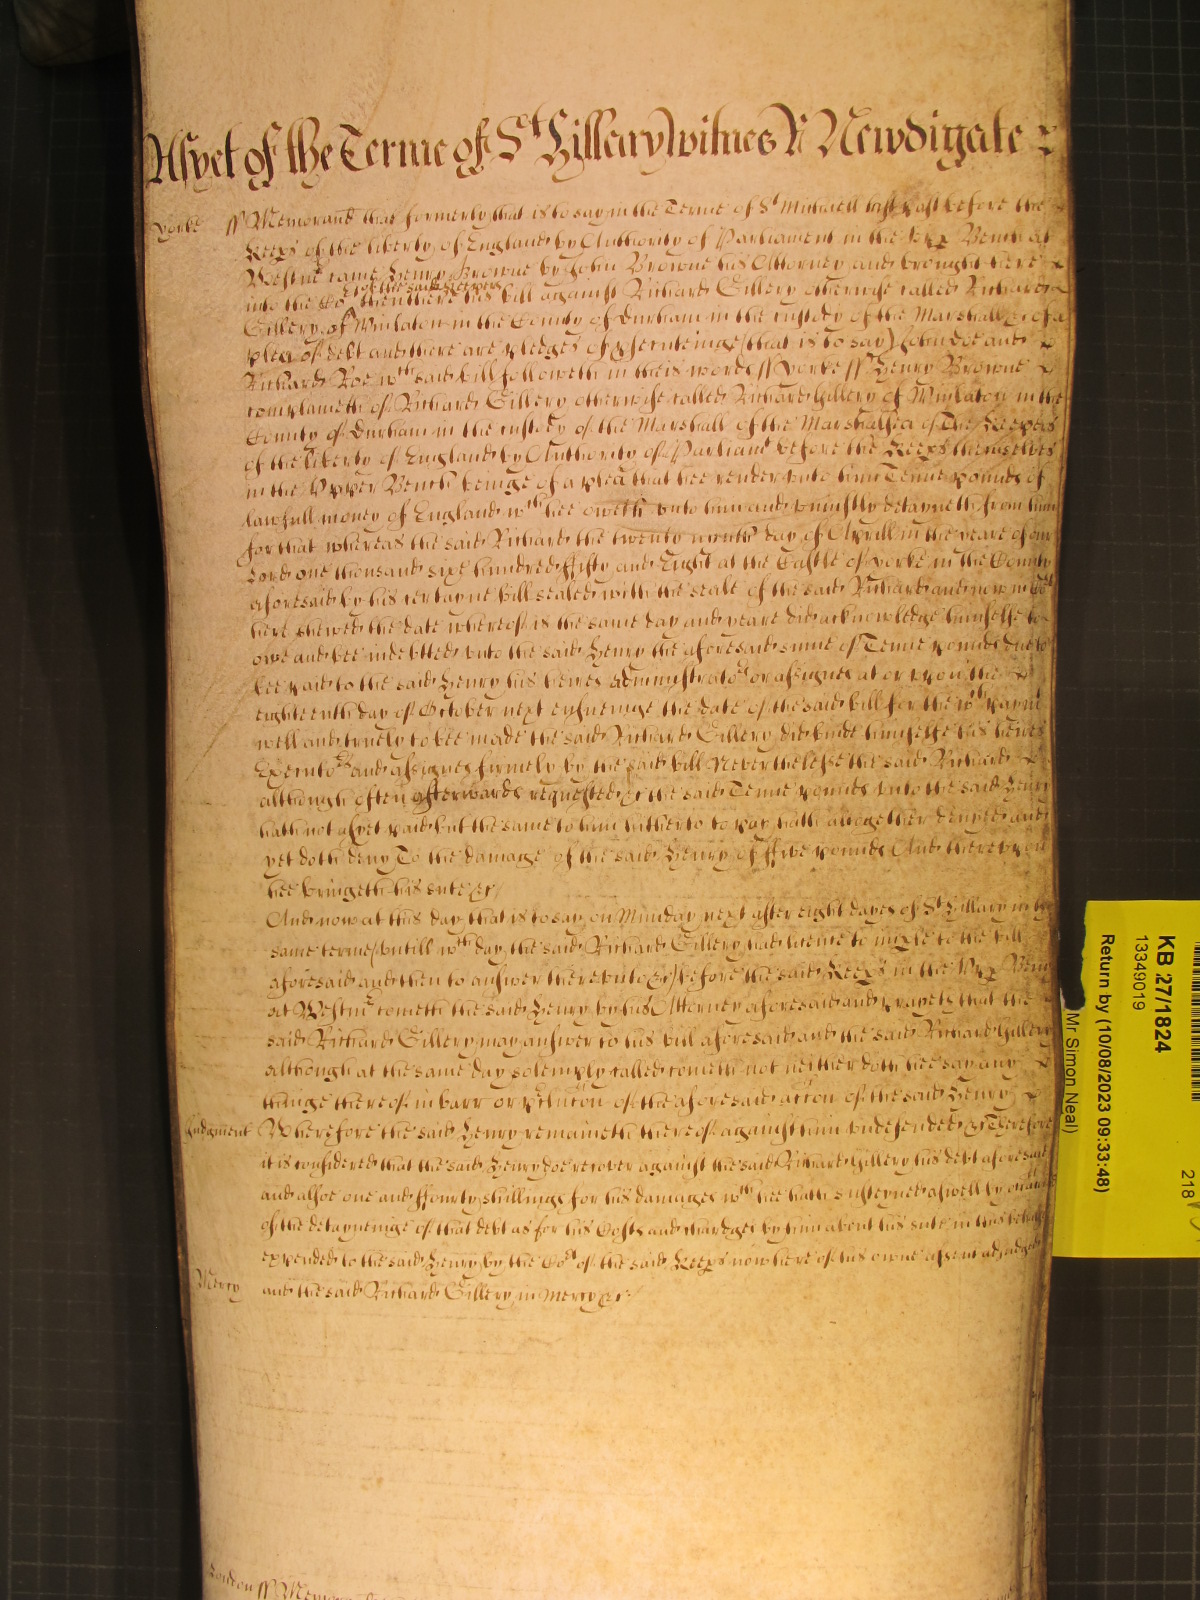 Asyet of the Terme of St Hillary witnes R Newdigate
Yorke ss Memorand that formerly that is to say in the Terme of St Michaell last past before the
Keeps of the liberty of England by Authority of Parliament in the Upp Bench at
Westmr came Henry Browne by John Browne his Attorney and brought here
of the said Keepers
into the Cot then there his bill against Richard Gillery otherwise called Richard
Gillery of Winlaton in the County of Durham in the custody of the Marshall &c of a
plea of debt and there are pledges of prsecuteinge (that is to say) John Doe and
Richard Roe wch said bill followeth in theis words ss Yorke ss Henry Browne
complaineth of Richard Gillery otherwise called Richard Gillery of Winlaton in the
County of Durham in the custody of the Marshall of the Marshalsea of The Keepers
of the liberty of England by Authority of Parliamt before the Keeps themselves
in the Upper Bench beinge of a plea that hee render unto him Tenne pounds of
lawfull money of England wch hee oweth unto him and uniustly detayneth from him
for that whereas the said Richard the twenty nynth day of Aprill in the yeare of our
Lord one thousand six hundred ffifty and Eight at the Castle of Yorke in the County
aforesaid by his certayne bill sealed with the seale of the said Richard and now in Cort
here shewed the date whereof is the same day and yeare did acknowledge himselfe to
owe and bee indebtted unto the said Henry the aforesaid sume of Tenne pounds due to
bee paid to the said Henry his heires administrators or assignes at or upon the
eighteenth day of October next ensueinge the date of the said bill for the wch paymt
well and truely to bee made the said Richard Gillery did binde himselfe his heires
Executors and assignes firmely by the said bill Neverthelesse the said Richard
although often afterwards requested &c the said Tenne pounds unto the said Henry
hath not asyet paid but the same to him hitherto to pay hath altogether denyed and
yet doth deny To the damage of the said Henry of ffive pounds And thereupon
hee bringeth his sute &c/
And now at this day that is to say on Munday next after eight dayes of St Hillary in the
same terme (untill wch day the said Richard Gillery had licence to imple to the bill
aforesaid and then to answer thereunto &c) before the said Keeps in the Upp Bench
at Westmr cometh the said Henry by his Attorney aforesaid and prayeth that the
said Richard Gillery may answer to his bill aforesaid and the said Richard Gillery
although at the same day solemply called cometh not neither doth hee say any
thinge thereof in barr or preclucon of the aforesaid accon of the said Henry
Judgment Wherefore the said Henry remaineth thereof against him undefended &c Therefore
it is considered that the said Henry doe recover against the said Richard Gillery his debt aforesaid
and alsoe one and ffourty shillings for his damages wch hee hath susteyned aswell by occasion
of the detayneinge of that debt as for his Costs and chardges by him about his sute in this behalfe
expended to the said Henry by the Cort of the said Keeps now here of his owne assent adjudged
Mercy and the said Richard Gillery in mercy &c:/
London ss
KB 27/1824
13349019
Return by (10/08/2023 09:33:48)
Mr Simon Neal)
218